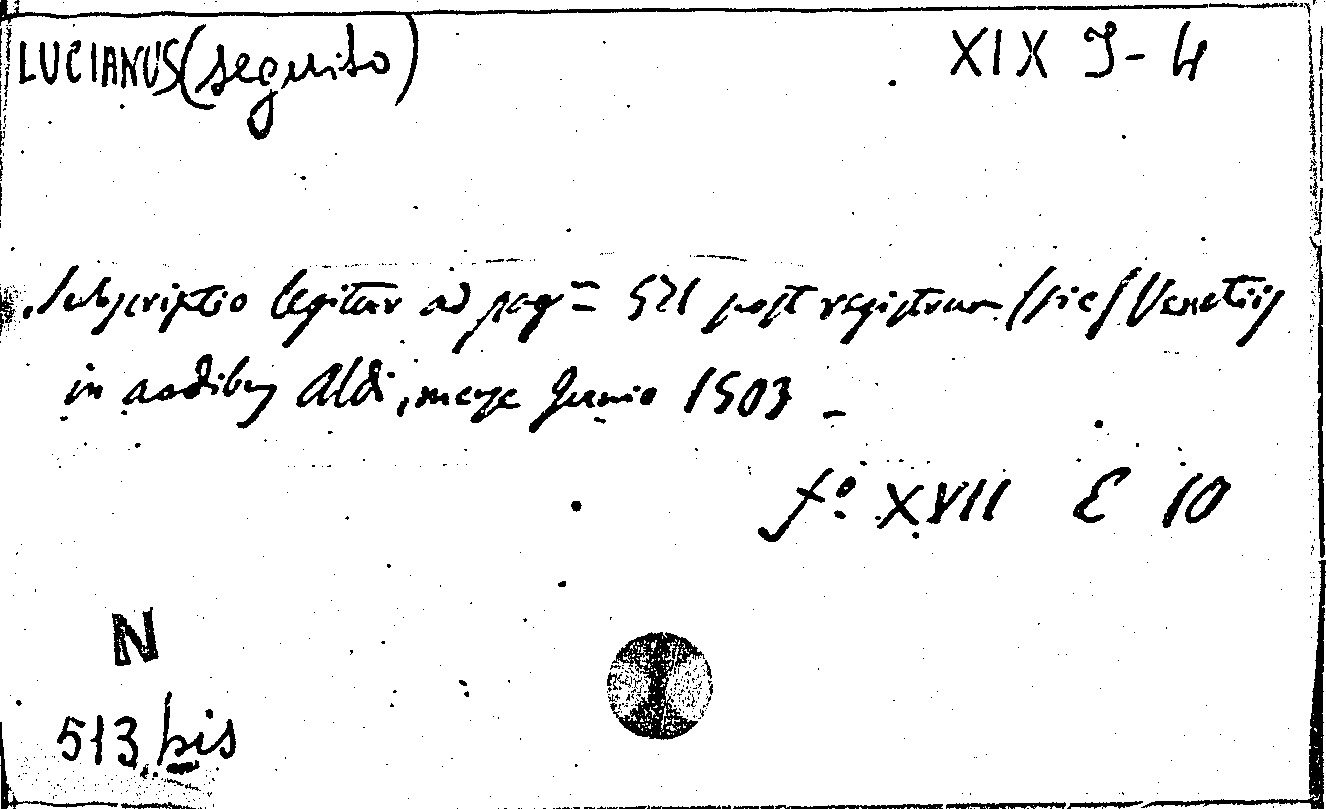 LUCIANUS (seguito) XIX J-4
Subscriptio legitur ad pag= 571 post registrum (sic) Venetiis
in aedibus Aldi, mense Junio 1503 -
fº XVII E 10
N
513 bis